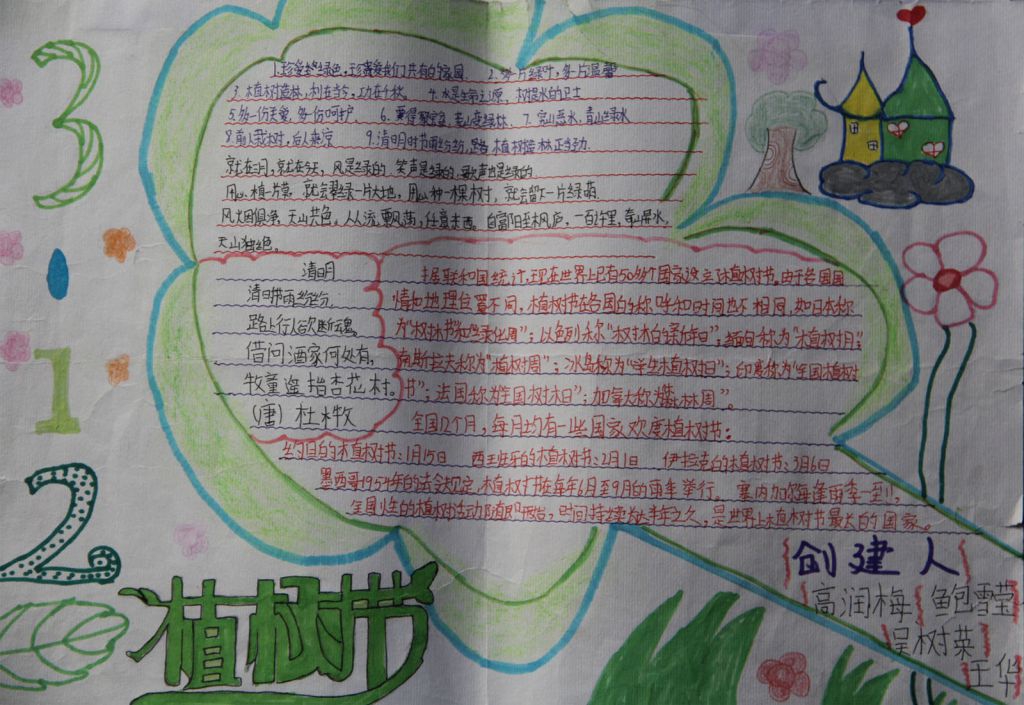 3
·
1
2
1.珍爱绿色,珍爱我们共有的家园 2.多一片绿叶,多一片温馨
3.植树造林,利在当今,功在千秋 4.水是生命之源,树是水的卫士
5.多一份关爱,多一份呵护 6.要得聚宝盆,荒山变绿林 7.穷山恶水,青山绿水
8.前人栽树,后人乘凉 9.清明时节雨纷纷,植树造林正当
就在三月,就在今天,风是绿的,笑声是绿的,歌声也是绿的
用心植一片草,就会翠绿一片大地,用心种一棵树,就会留下一片绿荫
风烟俱净,天山共色,从流飘荡,任意东西。自富阳至桐庐,一百许里,奇山异水,
天山独绝。
清明
清明时节雨纷纷,
路上行人欲断魂。
借问酒家何处有,
牧童遥指杏花村。
(唐)杜牧
据联和国统计,现在世界上已有50多个国家设立了植树节。由于各国国
情和地理位置不同,植树节在各国的称呼和时间也不相同,如日本称
为"树木节"和"绿化周";以色列称"树木的新年日";缅甸称为"植树月";
南斯拉夫称为"植树周";冰岛称为"学生植树日";印度称为"全国植树
节";法国称为"全国树木日";加拿大称为"森林周"。
全国12个月,每月均有一些国家欢度植树节:
约旦的植树节:1月15日 西班牙的植树节:2月1日 伊拉克的植树节:3月6日
墨西哥1954年的法令规定,植树节在每年6月至9月的雨季举行。塞内加尔每逢雨季一到,
全国性的植树活动随即开始,时间持续大半年之久,是世界上植树节最长的国家。
植树节
创建人
高润梅 鲍雪莹
吴树菜
王华